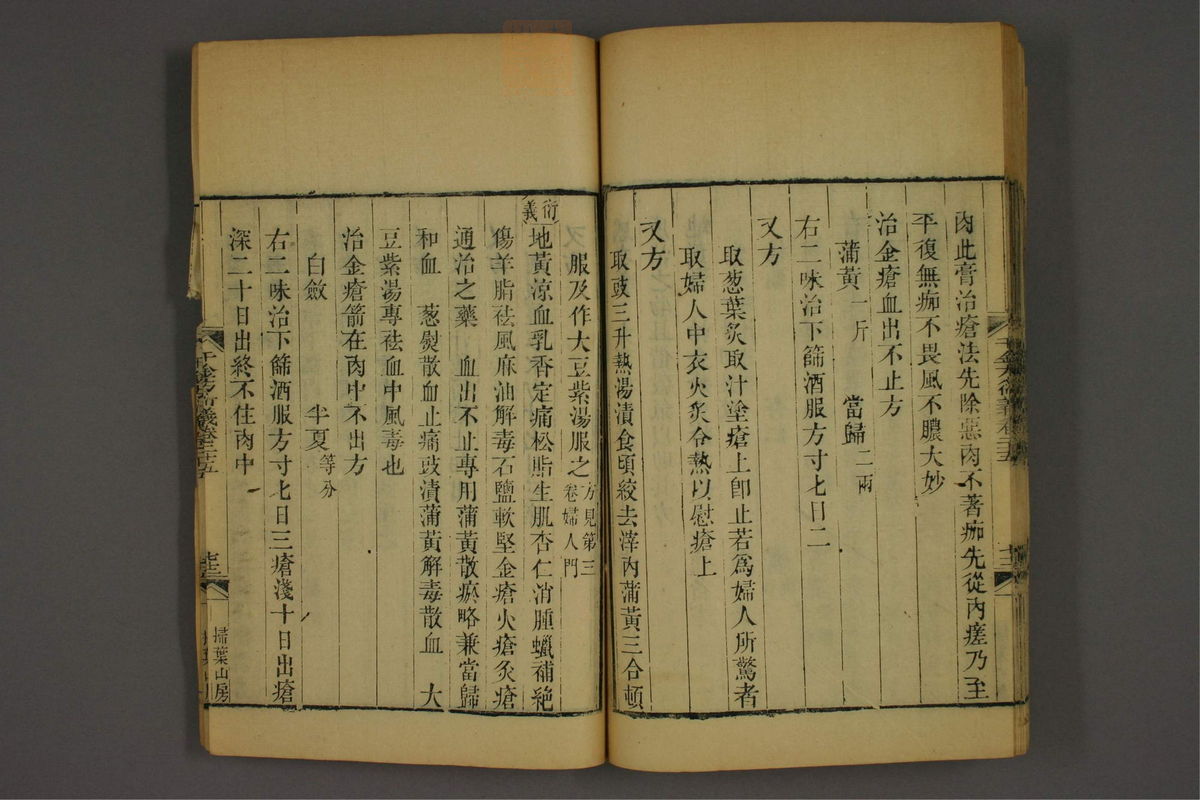 肉此膏治瘡法先除惡肉不著痂先從內瘥乃至
平復無痂不畏風不膿大妙
治金瘡血出不止方
蒲黃一斤 當歸二兩
右二味治下篩酒服方寸匕日二
又方
取葱葉炙取汁塗瘡上卽止若爲婦人所驚者
取婦人中衣火炙令熱以慰瘡上
又方
取豉三升熱湯漬食頃絞去滓內蒲黃三合頓
服及作大豆紫湯服之方見第三卷婦人門
衍義
地黃凉血乳香定痛松脂生肌杏仁消腫蠟補絕
傷羊脂祛風麻油解毒石鹽軟堅金瘡火瘡灸瘡
通治之藥 血出不止專用蒲黃散瘀略兼當歸
和血 葱熨散血止痛豉漬蒲黃解毒散血 大
豆紫湯專祛血中風毒也
治金瘡箭在肉中不出方
白斂 半夏等分
右二味治下篩酒服方寸匕日三瘡淺十日出瘡
深二十日出終不住肉中
千金方衍義卷二十五
掃葉山房